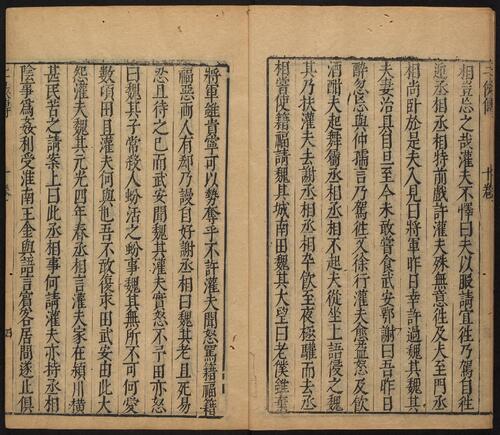 相豈忘之哉灌夫不懌曰夫以服請宜徃乃駕自徃
迎丞相丞相特前戲許灌夫殊無意徃及夫至門丞
相尚卧於是夫入見曰將軍昨日幸許過魏其魏其
夫妻治具自旦至今未敢嘗食武安鄂謝曰吾昨日
醉忽忘與仲孺言乃駕徃又徐行灌夫愈益怒及飲
酒酣夫起舞屬丞相丞相不起夫從坐上語侵之魏
其乃扶灌夫去謝丞相丞相卒飲至夜極驩而去丞
相嘗使籍福請魏其城南田魏其大望曰老僕雖棄
將軍雖貴寧可以勢奪乎不許灌夫聞怒罵籍福籍
福惡兩人有郄乃謾自好謝丞相曰魏其老且死易
忍且待之已而武安聞魏其灌夫實怒不予田亦怒
曰魏其子常殺人蚡活之蚡事魏其無所不可何愛
數頃田且灌夫何與也吾不敢復求田武安由此大
怨灌夫魏其元光四年春丞相言灌夫家在潁川橫
甚民苦之請案上曰此丞相事何請灌夫亦持丞相
陰事為姦利受淮南王金與語言賓客居間遂止俱